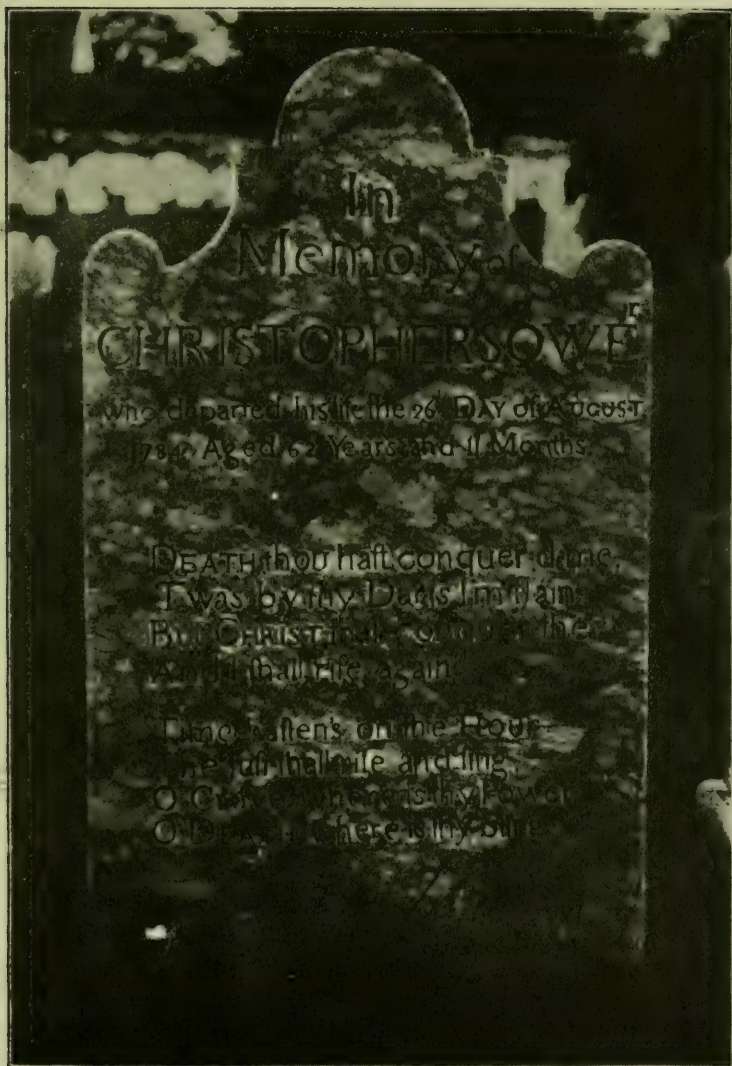 In
Memory of
CHRISTOPHER SOWER
who departed this life the 26 DAY of AUGUST
1784 Aged 62 Years and 11 Months.
DEATH thou haſt conquer'd me,
T'was by thy Darts I'm ſlain
But CHRIST ſhall conquer the
And I ſhall riſe again
Time haſten's on the Hour
The juſt ſhall riſe and ſing
O Grave where is thy Power
O DEATH where is thy